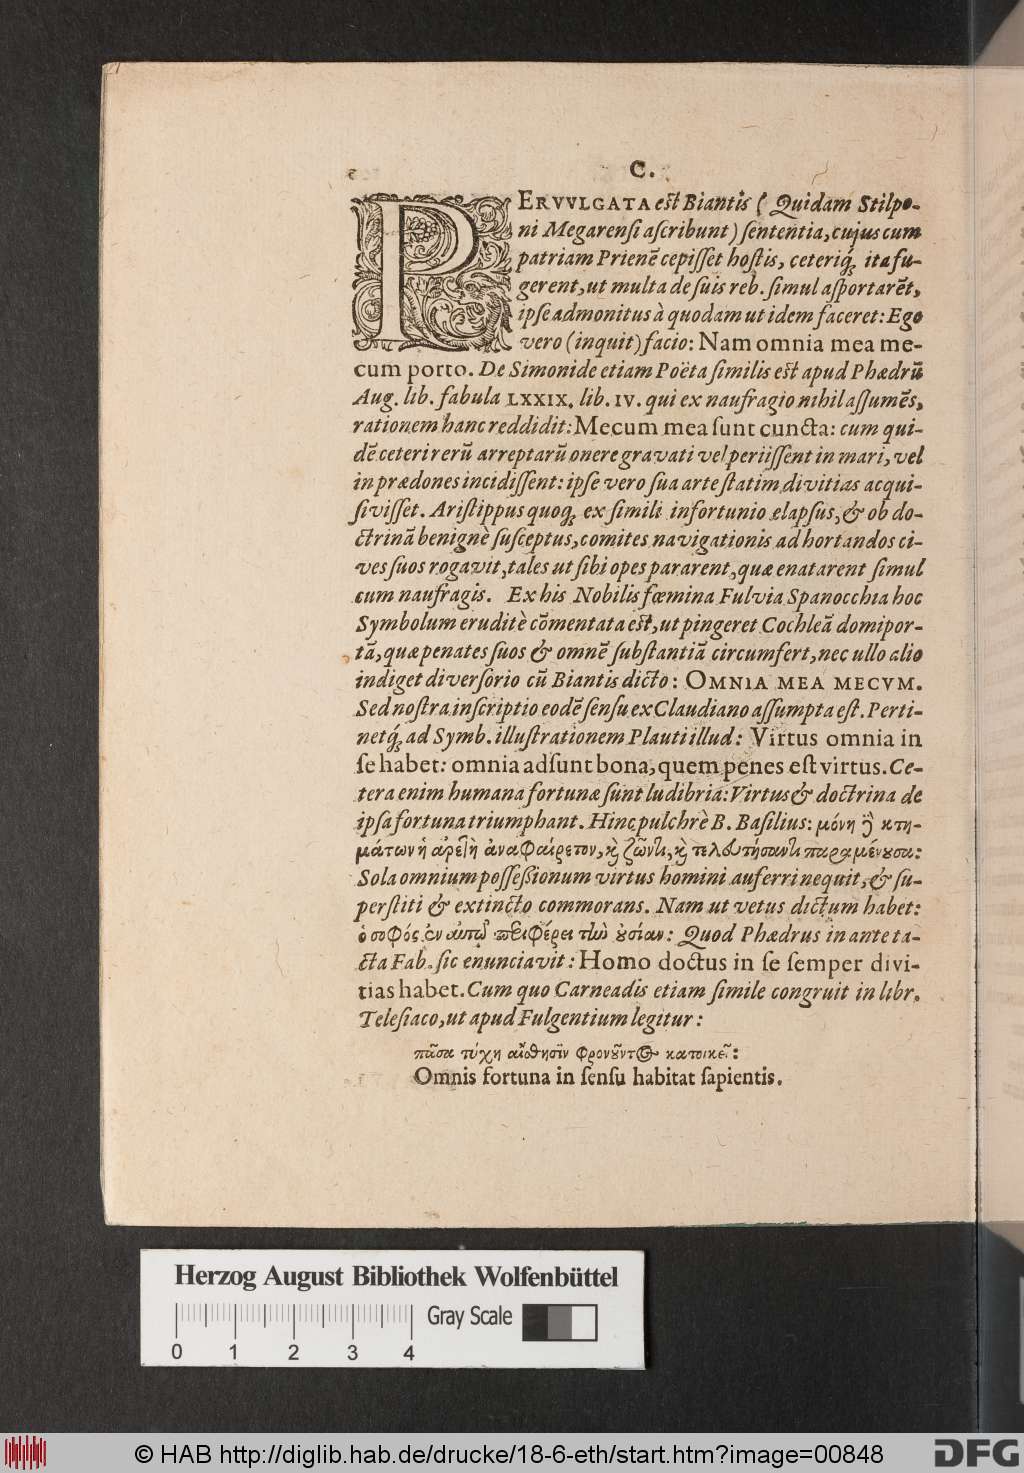 C.
PERVVLGATA est Biantis ( Quidam Stilpo-
ni Megarensi ascribunt) sententia, cujus cum
patriam Prienẽ cepisset hostis, ceteriq́; ita fu-
gerent, ut multa de suis reb. simul asportarẽt,
ipse admonitus à quodam ut idem faceret: Ego
vero (inquit) facio: Nam omnia mea me-
cum porto. De Simonide etiam Poëta similis est apud Phædrũ
Aug. lib. fabula LXXIX. lib. IV. qui ex naufragio nihil assumẽs,
rationem hanc reddidit: Mecum mea sunt cuncta: cum qui-
dẽ ceteri rerũ arreptarũ onere gravati vel periissent in mari, vel
in prædones incidissent: ipse vero sua arte statim divitias acqui-
sivisset. Aristippus quoq; ex simili infortunio elapsus, & ob do-
ctrinã benignè susceptus, comites navigationis ad hortandos ci-
ves suos rogavit, tales ut sibi opes pararent, quæ enatarent simul
cum naufragis. Ex his Nobilis fœmina Fulvia Spanocchia hoc
Symbolum eruditè cõmentata est, ut pingeret Cochleã domipor-
tã, quæ penates suos & omnẽ substantiã circumfert, nec ullo alio
indiget diversorio cũ Biantis dicto: OMNIA MEA MECVM.
Sed nostra inscriptio eodẽ sensu ex Claudiano assumpta est. Perti-
netq́; ad Symb. illustrationem Plauti illud: Virtus omnia in
se habet: omnia adsunt bona, quem penes est virtus. Ce-
tera enim humana fortunæ sunt ludibria: Virtus & doctrina de
ipsa fortuna triumphant. Hinc pulchrè B. Basilius: μόνη ϳ̃ κτη-
μάτων ἡ ἀρετὴ ἀναφαίρετον, κὶ ζῶντι, κὶ τελευτήσαντι παραμένουσα:
Sola omnium possessionum virtus homini auferri nequit, & su-
perstiti & extincto commorans. Nam ut vetus dictum habet:
ὁ σοφός ἐν αὑτῷ περιφέρει τὴν οὐσίαν: Quod Phædrus in ante ta-
cta Fab. sic enunciavit: Homo doctus in se semper divi-
tias habet. Cum quo Carneadis etiam simile congruit in libr.
Telesiaco, ut apud Fulgentium legitur:
πᾶσα τύχη αἴσθησιν φρονοῦντος κατοικεῖ:
Omnis fortuna in sensu habitat sapientis.
Herzog August Bibliothek Wolfenbüttel
Gray Scale
0 1 2 3 4
© HAB http://diglib.hab.de/drucke/18-6-eth/start.htm?image=00848
DFG